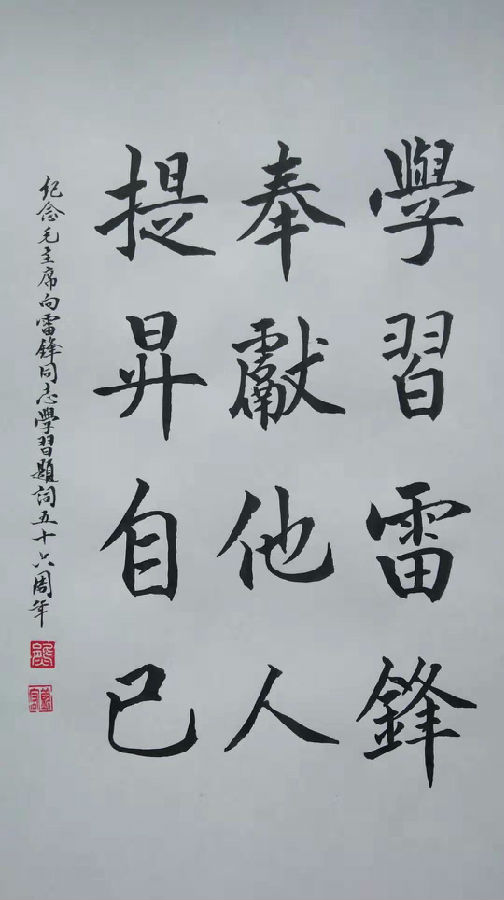 學習雷鋒
奉獻他人
提昇自己
纪念毛主席向雷鋒同志學習題词五十六周年